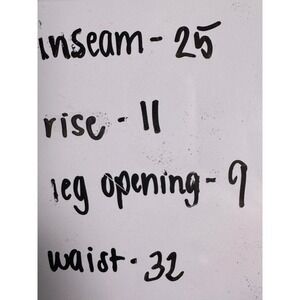 inseam - 25
rise - 11
leg opening - 9
waist - 32